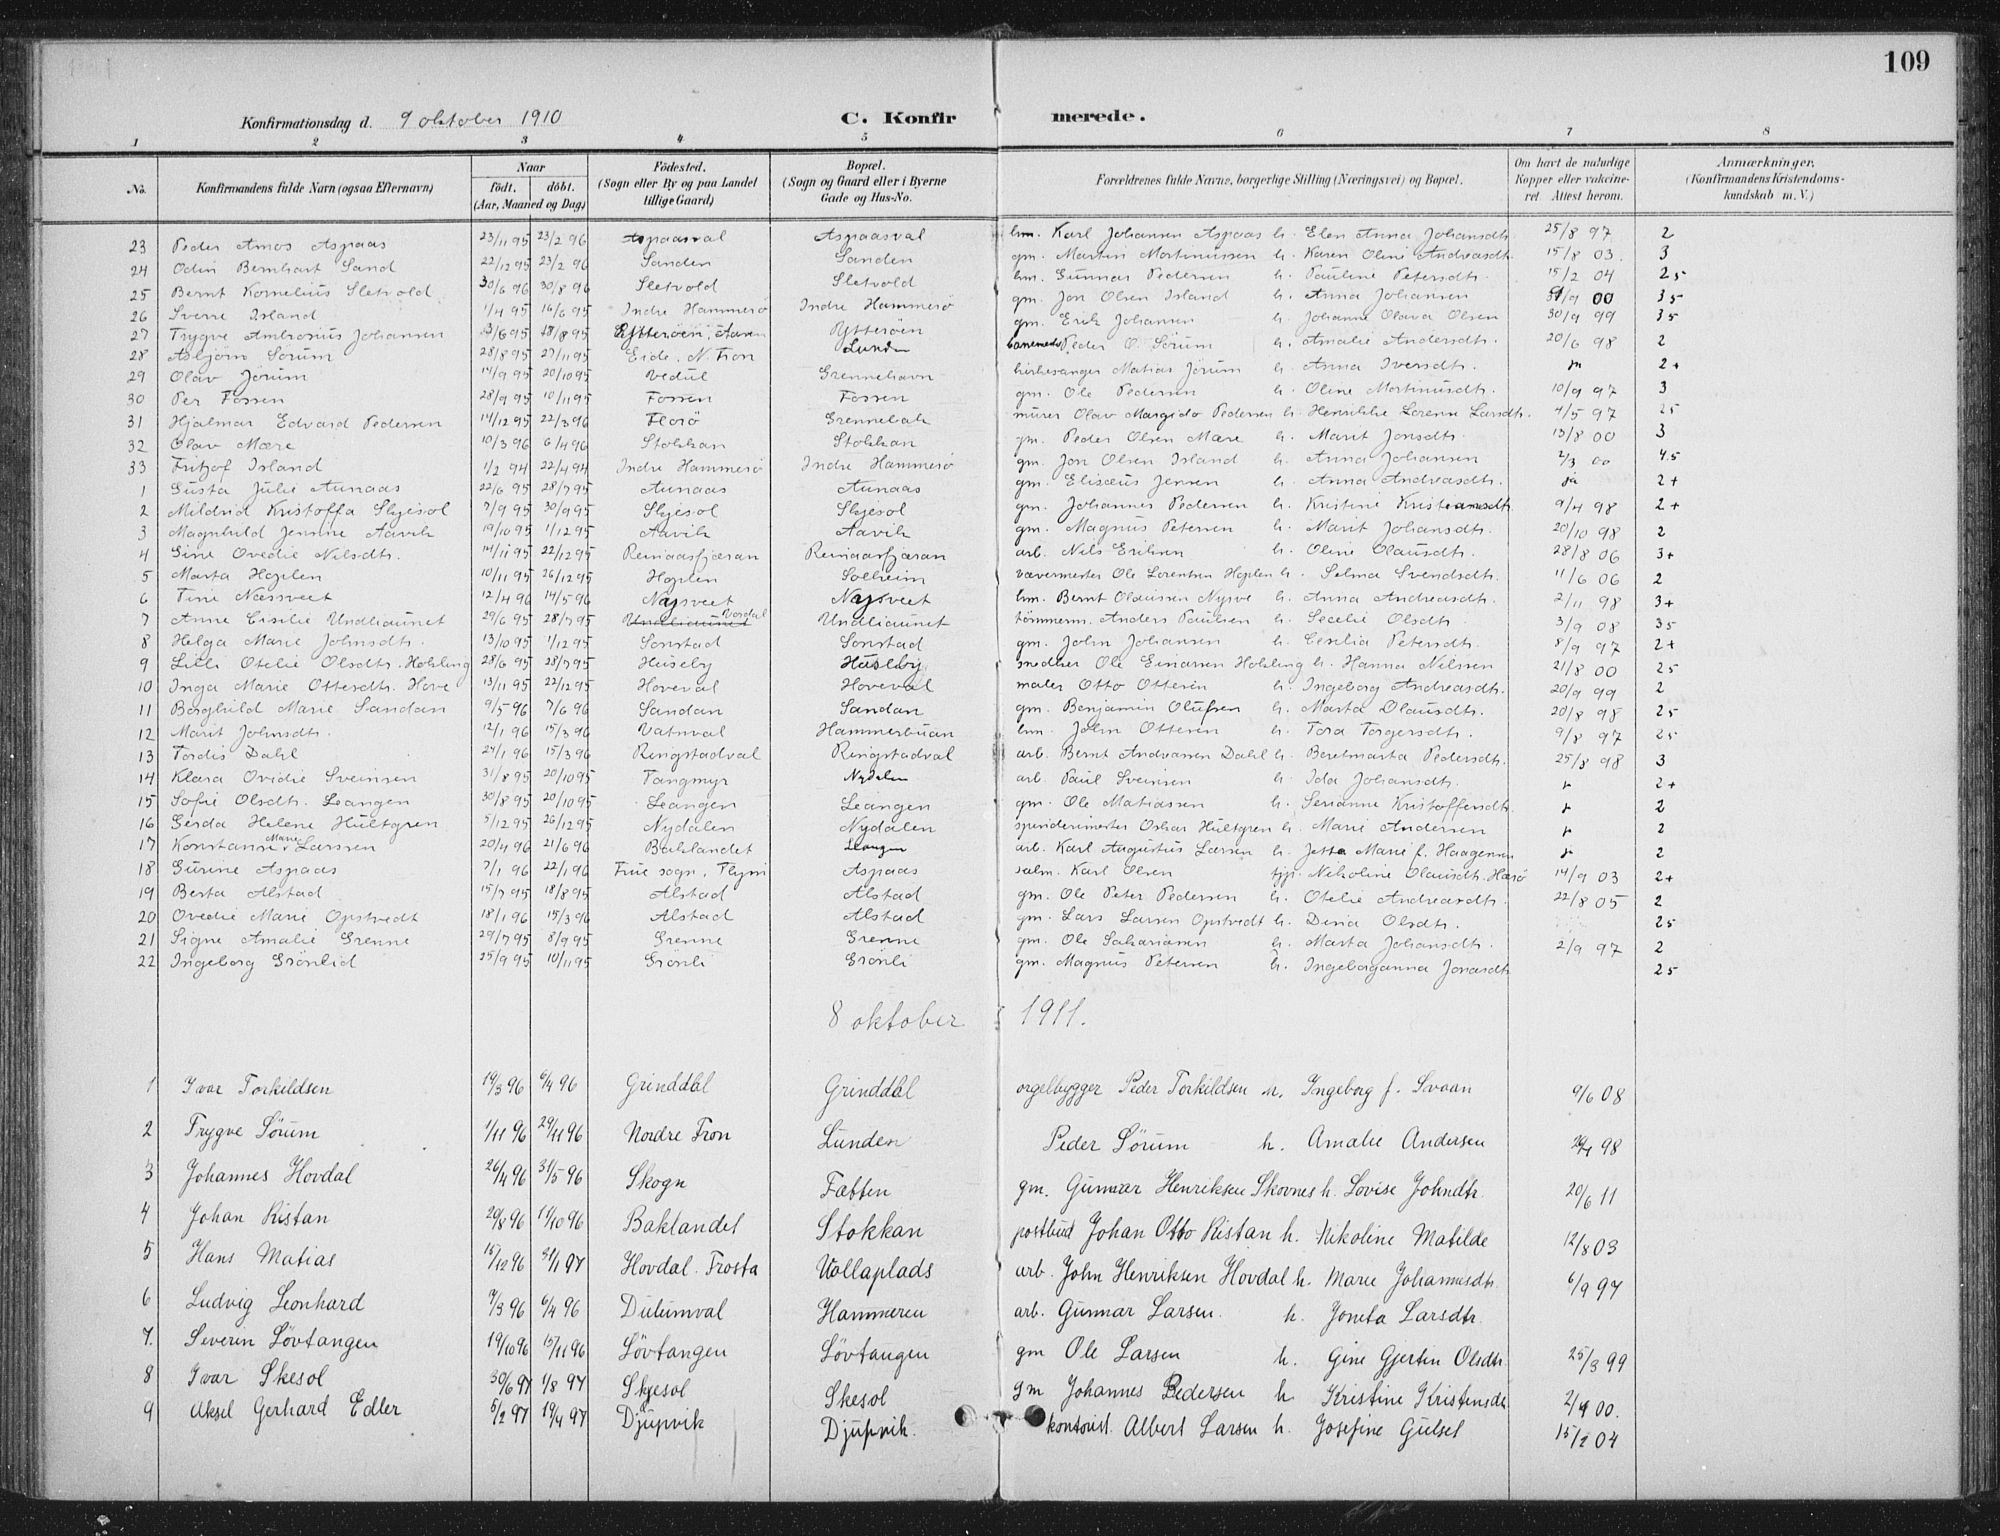 109
Konfirmationsdag d. 9 oktober 1910 C. Konfirmerede.
1 2 3 4 5 6 7 8
No. Konfirmandens fulde Navn (ogsaa Efternavn) Naar födt. döbt. (Aar, Maaned og Dag) Födested. (Sogn eller By og paa Landet tillige Gaard) Bopæl. (Sogn og Gaard eller i Byerne Gade og Hus-No. Forældrenes fulde Navne, borgerlige Stilling (Næringsvei) og Bopæl. Om havt de naturlige Kopper eller vakcineret. Attest herom. Anmærkninger. (Konfirmandens Kristendomskundskab m. V.)
23 Peder Amos Aspaas 23/11 95 23/2 96 Aspaasval Aspaasval hm. Karl Johansen Aspaas h. Elen Anna Johansdtr. 25/8 97 2
24 Odin Bernhart Sand 22/12 95 23/2 96 Sanden Sanden gm. Martin Mortinussen h. Karen Oline Andreasdtr. 15/8 03. 3
25 Bernt Kornelius Sletvold 30/6 96 30/8 96 Sletvold Sletvold hm. Gunnar Pedersen h. Pauline Petersdtr. 15/2 04 25
26 Sverre Island 1/4 95 16/6 95 Indre Hammerö Indre Hammerö gm. Jon Olsen Island h. Anna Johansen /9 00 35
27 Trygve Ambrosius Johansen /6 95 18/8 95 Ytteröen Ytteröen gm. Erik Johansen h. Johanne Olava Olsen 30/9 99 35
28 Asbjörn Sörum 28/8 95 27/11 95 Eide, N. Fron Lunden banemester Peder O. Sörum h. Amalie Andersdtr. 20/6 98 2
29 Olav Jörum 14/9 95 20/10 95 Vedul Grennehavn kirkesanger Matias Jörum h. Anna Iversdtr. ja 2+
30 Per Fossen 28/9 95 10/11 95 Fossen Fossen gm. Ole Pedersen h. Oline Mortinusdtr. 10/9 97 3
31 Hjalmar Edvard Pedersen 14/12 95 22/3 96 Florö Grennebak murer Olav Margido Pedersen h. Henrikke Lorense Larsdtr. 4/5 97 25
32 Olav Mære 10/3 96 6/4 96 Stokkan Stokkan gm. Peder Olsen Mære h. Marit Jonsdtr. 13/8 00 3
33 Fritjof Island 1/2 94 22/4 94 Indre Hammerö Indre Hammerö gm. Jon Olsen Island h. Anna Johansen 2/3 00 4.5
1 Gusta Julie Aunaas 22/6 95 28/7 95 Aunaas Aunaas gm. Elisæus Jensen h. Anna Andreasdtr. ja 2+
2 Mildrid Kristoffa Skjesol 7/9 95 30/9 95 Skjesol Skjesol gm. Johannes Pedersen h. Kristine Kristiansdtr. 9/4 98 2+
3 Magnhild Jensine Aavik 19/10 95 1/12 95 Aavik Aavik gm. Magnus Petersen h. Marit Johansdtr. 20/10 98 2
4 Gine Ovedie Nilsdtr. 14/11 95 22/12 95 Reinaasfjæran Reinaasfjæran arb. Nils Eriksen h. Oline Olausdtr. 28/8 06 3+
5 Marta Hoplen 10/11 95 26/12 95 Hoplen Solheim vævermester Ole Lorentsen Hoplen h. Selma Svendsdtr. 11/6 06 2
6 Tine Næssveet 12/4 96 14/5 96 Nysveet Nysveet hm. Bernt Olausen Nysve h. Anna Andreasdtr. 2/11 98 3+
7 Anne Cisilie Undliaunet 29/6 95 28/7 95 Undliaunet Vordal Undliaunet tömmerm. Anders Paulsen h. Secelie Olsdtr. 3/9 08 35
8 Helga Marie Johnsdtr. 13/10 95 1/12 95 Sonstad Sonstad gm. John Johansen h. Cecilia Petersdtr. 8/9 97 2+
9 Lilli Otelie Olsdtr. Holsling 28/6 95 28/7 95 Huseby Huseby snedker Ole Einarsen Holsling h. Hanna Nilssen 21/8 00 25
10 Inga Marie Ottersdtr. Hove 13/11 95 22/12 95 Hoveval Hoveval maler Otto Ottersen h. Ingeborg Andreasdtr. 20/9 99 2
11 Borghild Marie Sandan 9/5 96 7/6 96 Sandan Sandan gm. Benjamin Olufsen h. Marta Olausdtr. 20/8 98 25
12 Marit Johnsdtr. 12/1 96 15/3 96 Vatnval Hammerbuan hm. John Ottersen h. Tora Torgersdtr. 9/8 97 25
13 Tordis Dahl 24/1 96 15/3 96 Ringstadval Ringstadval arb. Bernt Andreasen Dahl h. Beretmarta Pedersdtr. 25/8 98 3
14 Klara Ovidie Sveinsen 31/8 95 20/10 95 Tangmyr Nydalen arb. Paul Sveinsen h. Ida Johansdtr. 2+
15 Sofie Olsdtr. Leangen 30/8 95 20/10 95 Leangen Leangen gm. Ole Matiassen h. Serianne Kristoffersdtr. 2
16 Gerda Helene Hultgren 5/12 95 26/12 95 Nydalen Nydalen spinderimester Oskar Hultgren h. Marie Andersen 2
17 Konstanse Marie Larssen 20/4 96 21/6 96 Baklandet Leangen arb. Karl Augustus Larsen h. Jetta Marie f. Haagensen 2
18 Gurine Aspaas 7/1 96 22/1 96 Frue sogn, Thjm Aspaas salm. Karl Olsen tjp. Nikoline Olausdtr. Hærö 14/9 03 2+
19 Berta Alstad 15/7 95 18/8 95 Alstad Alstad gm. Ole Peter Pedersen h. Otelie Andreasdtr. 22/8 05 2
20 Ovedie Marie Opstvedt 18/1 96 15/3 96 Alstad Alstad gm. Lars Larsen Opstvedt h. Dina Olsdtr. 25
21 Signe Amalie Grenne 29/7 95 8/9 95 Grenne Grenne gm. Ole Sakariasen h. Marta Johansdtr. 2/9 97 2
22 Ingeborg Grönlid 25/9 95 10/11 95 Grönli Grönli gm. Magnus Petersen h. Ingeborganna Jonasdtr 25
8 oktober 1911.
1 Ivar Torkildsen 19/3 96 6/4 96 Grinddal Grinddal orgelbygger Peder Torkildsen h. Ingeborg f. Svaan 9/6 08
2 Trygve Sörum 1/11 96 29/11 96 Nordre Fron Lunden Peder Sörum h. Amalie Andersen 98
3 Johannes Hovdal 26/4 96 31/5 96 Skogn Fatten gm. Gunnar Henriksen Skovnes h. Lovise Johndtr. 20/6 11
4 Johan Ristan 20/8 96 11/10 96 Baklandet Stokkan postbud Johan Otto Ristan h. Nikoline Matilde 12/8 03
5 Hans Matias 15/12 96 31/1 97 Hovdal. Frosta Vollaplads arb. John Henriksen Hovdal h. Marie Johannesdtr. 6/9 97
6 Ludvig Leonhard 7/3 96 6/4 96 Dulumval Hammeren arb. Gunnar Larsen. h. Joneta Larsdtr.
7. Severin Lövtangen 19/10 96 15/11 96 Lövtangen Lövtangen gm Ole Larsen h. Gine Gjertin Olsdtr. 25/3 99
8 Ivar Skesol 30/6 97 1/8 97 Skesol Skesol gm Johannes Pedersen h Kristine Kristensdtr 2/9 00.
9 Aksel Gerhard Edler 5/2 97 19/4 97 Djupvik Djupvik. kontorist. Albert Larsen h. Josefine Gulset 15/2 04